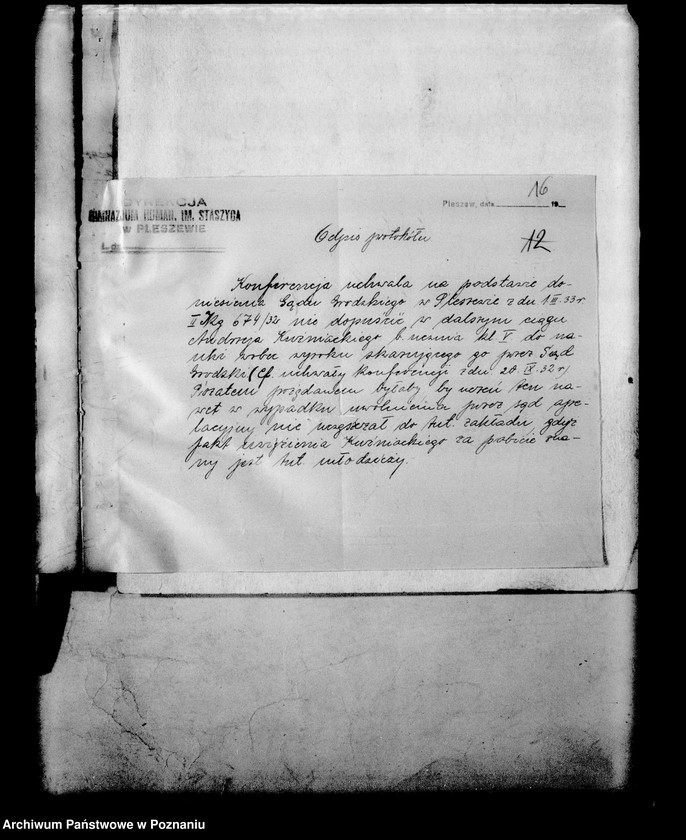 DYREKCJA
GIMNAZJUM HUMAN. IM. STASZYCA
W PLESZEWIE
L. dz.
Pleszew, dnia 19
16
12
Odpis protokółu
Konferencja uchwala na podstawie do-
niesienia Sądu Grodzkiego w Pleszewie z dn 1 III. 33 r.
II Kg 674/32 nie dopuścić w dalszym ciągu
Andrzeja Kuźniackiego b. ucznia kl V do na-
uki wobec wyroku skazującego go przez Sąd
Grodzki (Cf. uchwały konferencji z dn. 20 IX. 32 r)
Pozatem pożądanem byłoby by uczeń ten na-
wet w wypadku uwolnienia przez sąd ape-
lacyjny nie uczęszczał do tut. zakładu gdyż
fakt uwięzienia Kuźniackiego za pobicie zna-
ny jest tut. młodzieży.
Archiwum Państwowe w Poznaniu